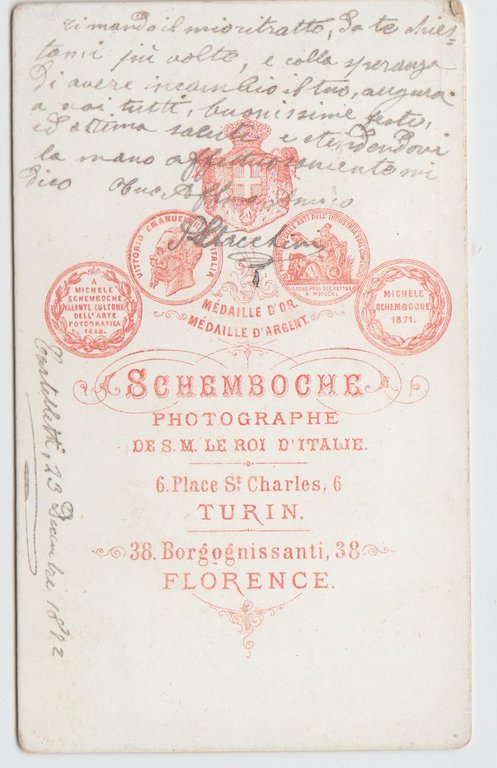 ti mando il mio ritratto, da te chies=
tomi più volte, e colla speranza
di avere incambio il tuo, augura
a voi tutti, buonissime feste,
ed ottima salute e stendendovi
la mano affettuosamente mi
dico tuo Aff Amico
VITTORIO EMANUELE ITALIA
A
MICHELE
SCHEMBOCHE
VALENTE CULTORE
DELL'ARTE
FOTOGRAFICA
1868.
MICHELE
SCHEMBOCHE
1871.
MÉDAILLE D'OR.
MÉDAILLE D'ARGENT.
SCHEMBOCHE
PHOTOGRAPHE
DE S. M. LE ROI D'ITALIE.
6. Place St Charles, 6
TURIN.
38. Borgognissanti, 38
FLORENCE.
23 Dicembre 1872